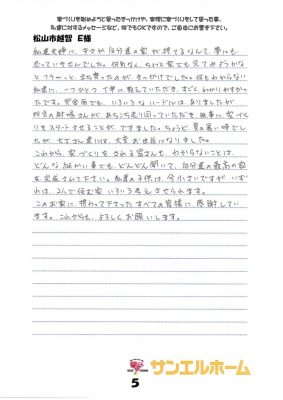 家づくりを始めようと思ったきっかけや、実際に家づくりをして思った事、
私達に対するメッセージなど、何でもOKですので、ご自由にお書き下さい。
松山市越智 E様
私達夫婦に、まさか自分達の家が持てるなんて、夢にも
思っていませんでした。何気なく、ちょっと家でも見てみようかな
とフラ〜っと、立ち寄ったのが、きっかけでした。何もわからない
私達に、一つひとつ丁寧に教えていただき、すごくわかりやすかっ
たです。完全前でも、いろいろなハードルはありましたが
担当の射場さんが、あちこち走り回っていただき、無事に、家づく
りをスタートさせることが、できました。ちょうど、夏の暑い時でし
たが、大工さん達には、大変お世話になりました。
これから、家づくりをされる皆さんも、わからないことは、
どんな細かい事でも、どんどん聞いて、自分達の最高の家
を完成されて下さい。私達の子供は、今小さいですが、いず
れは、2人で住む家いろいろ考えさせられます。
このお家に、携わって下さったすべての皆様に、感謝してい
ます。これからも、よろしくお願いします。
サンエルホーム
5